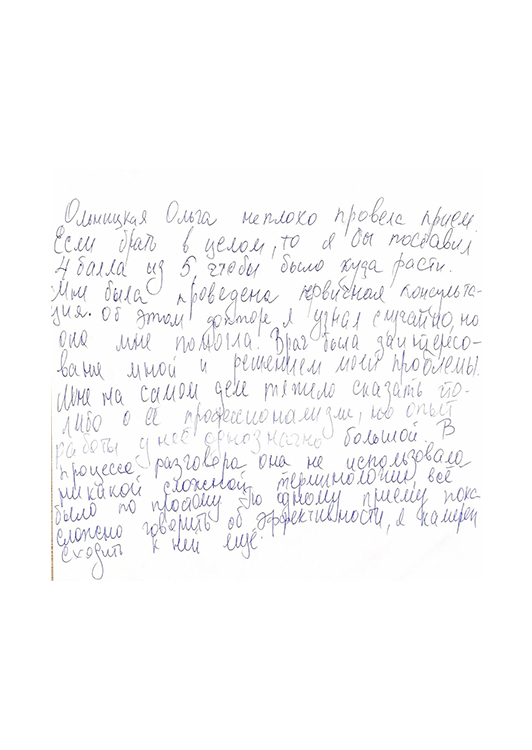 Ольницкая Ольга неплохо провела прием.
Если брать в целом, то я бы поставил
4 балла из 5, чтобы было куда расти.
Мне была проведена первичная консульта-
ция. Об этом докторе я узнал случайно, но
она мне помогла. Врач была заинтересо-
вана мной и решением моей проблемы.
Мне на самом деле тяжело сказать что-
либо о её профессионализме, но опыт
работы у неё однозначно большой. В
процессе разговора она не использовала
никакой сложной терминологии, всё
было по простому. По одному приему пока
сложно говорить об эффективности, я намерен
сходить к ней ещё.